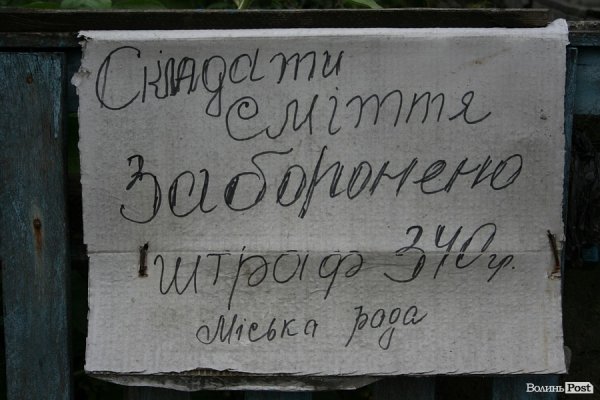 Складати
сміття
Заборонено
штраф 340 г.
Міська рада
ВолиньPost